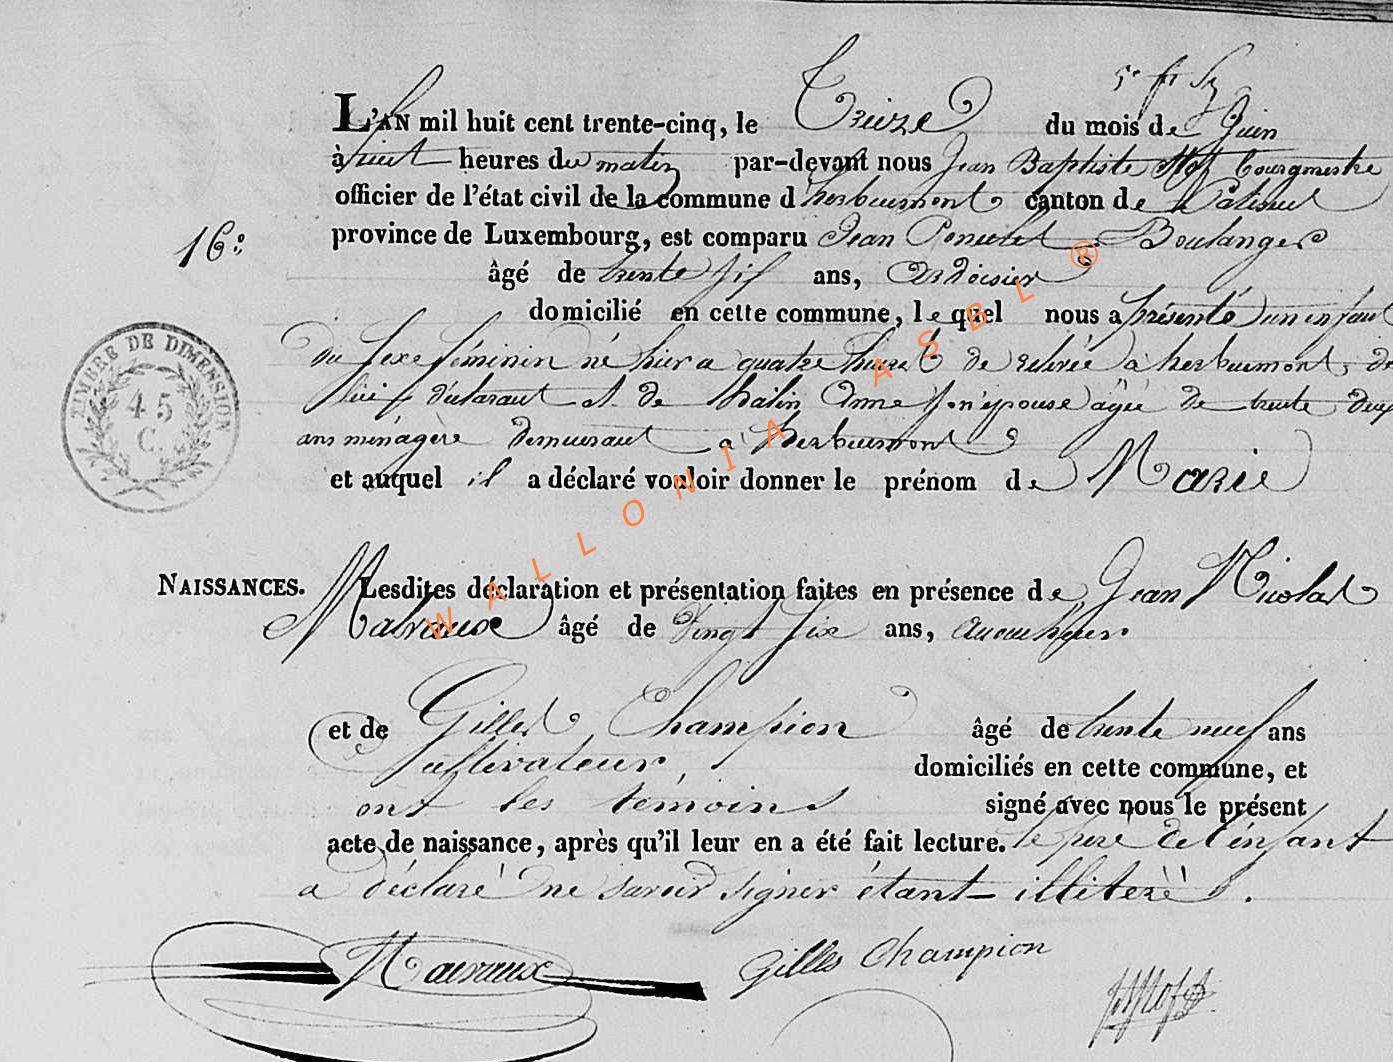 L'AN mil huit cent trente-cinq, le Treize du mois de Juin
à huit heures du matin par-devant nous Jean Baptiste bourgmestre
officier de l'état civil de la commune d'herbeumont canton de Paliseul
16°.
province de Luxembourg, est comparu Jean Poncelet Boulanger
âgé de trente six ans, ardoisier
domicilié en cette commune, lequel nous a présenté un enfant
du sexe féminin né hier a quatre heures de relevée à herbeumont, de
lui déclarant et de halin Anne son épouse agée de trente deux
ans ménagère demeurant a herbeumont
et auquel il a déclaré vouloir donner le prénom de Marie
TIMBRE DE DIMENSION
45
C.
NAISSANCES.
Lesdites déclaration et présentation faites en présence de Jean Nicolas
âgé de Vingt six ans,
et de Gilles Champion âgé de trente neuf ans
cultivateur, domiciliés en cette commune, et
ont les témoins signé avec nous le présent
acte de naissance, après qu'il leur en a été fait lecture. le pere de l'enfant
a déclaré ne savoir signer étant illiteré.
Gilles Champion
WALLONIA ASBL ®